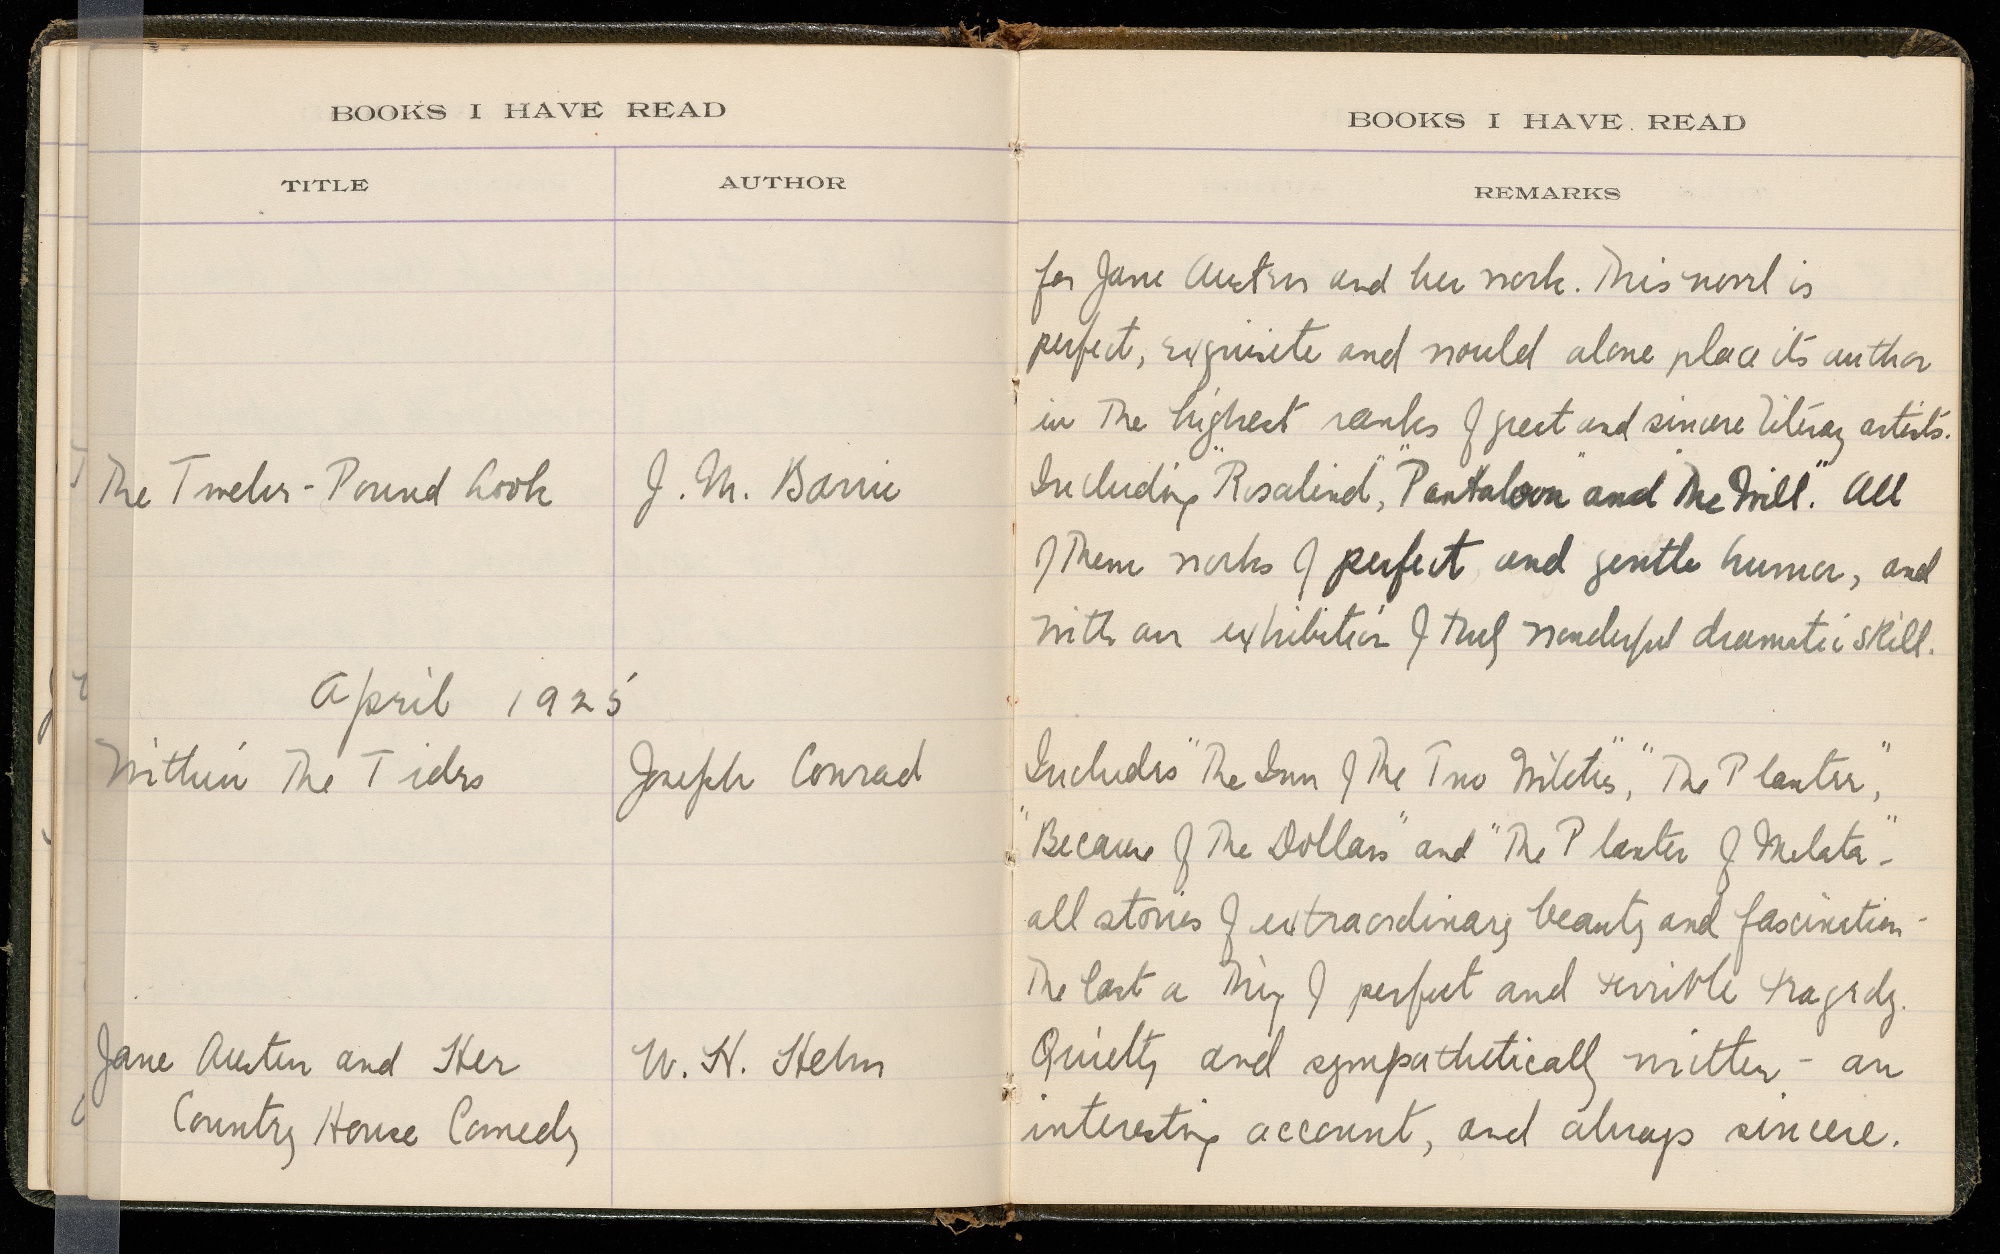 BOOKS I HAVE READ
TITLE AUTHOR
The Twelve-Pound Look J. M. Barrie
April 1925
Within The Tides Joseph Conrad
Jane Austen and Her W. H. Helm
Country House Comedy
BOOKS I HAVE READ
REMARKS
for Jane Austen and her work. This novel is
perfect, exquisite and would alone place its author
in the highest ranks of great and sincere literary artists.
Including "Rosalind", "Pantaloon" and "The Will." All
of them works of perfect and gentle humor, and
with an exhibition of truly wonderful dramatic skill.
Includes "The Inn of The Two Witches," "The Planter,"
"Because of The Dollars" and "The Planter of Malata" -
all stories of extraordinary beauty and fascination -
The last a thing of perfect and terrible tragedy.
Quietly and sympathetically written - an
interesting account, and always sincere.